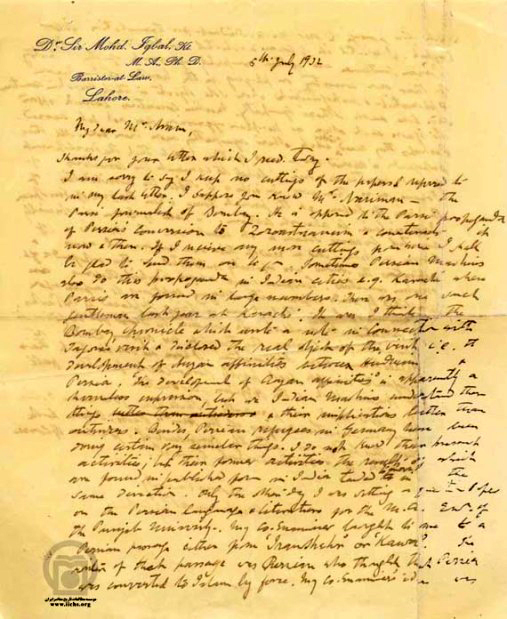 Dr Sir Mohd. Iqbal, Kt
M. A., Ph. D.
Barrister-at-Law,
Lahore.
5th July 1932
My dear Mr
Thanks for your letter which I recd. today.
I am sorry to say I keep no cuttings of the papers I referred to
in my last letter. I suppose you know Mr. Nariman — the
Parsi journalist of Bombay. He is opposed to the Parsi propaganda
of Persia's conversion to Zoroastrianism & counteracts it
now & then. If I receive any more cuttings I shall
be glad to send them on to you. Sometimes Persian Muslims
also do this propaganda in Indian cities e.g. Karachi where
Parsis are found in large numbers. There was one such
gentleman last year at Karachi. It was I think the
Bombay Chronicle which wrote a note in connection with
Tagore's visit & disclosed the real object of the visit i.e.
development of Aryan affinities between Hinduism &
Persia. The development of Aryan affinities is apparently a
harmless expression, but we Indian Muslims understand these
things & their implications better than
outsiders. Persian refugees in Germany have been
doing certain very similar things. I do not know their present
activities; but their former activities, the results of which
are found in published form in India tended to the
same direction. Only the other day I was setting a
on the Persian language & literature for the M.A. of
the Punjab University. My co-examiner brought to me a
Persian passage either from "Iranshehr" or "Kawa". The
writer of that passage was Persian who thought that Persia
was converted to Islam by force. My co-examiner's idea was
www.iichs.org